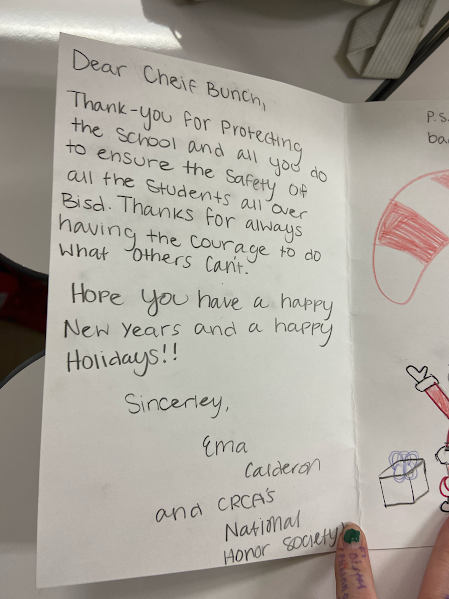 Dear Cheif Bunch,
Thank-you for Protecting
the School and all you do
to ensure the Safety of
all the Students all over
Bisd. Thanks for always
having the Courage to do
what others can't.
Hope you have a happy
New years and a happy
Holidays!!
Sincerley,
Ema
Calderon
and CRCA's
National
Honor Society!
P.S.